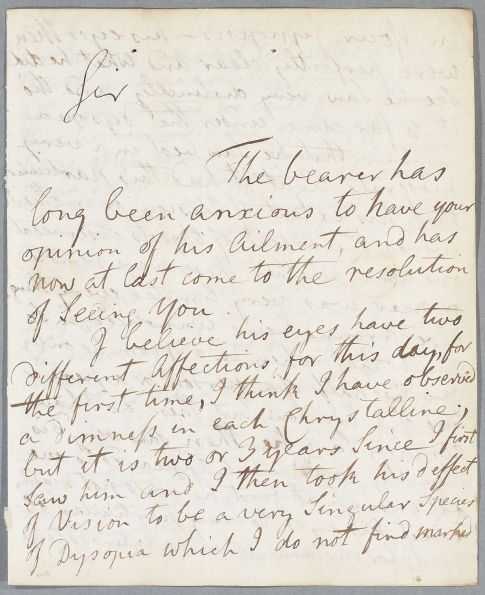 Sir
The bearer has
long been anxious, to have your
opinion of his Ailment, and has
now at last come to the resolution
of Seeing You.
I believe his eyes have two
different Affections, for this day, for
the first time, I think I have observed
a dimness in each Chrystalline;
but it is two or 3 years Since I first
Saw him and I then took his deffect
of Vision to be a very Singular Species
of Dysopia which I do not find marked